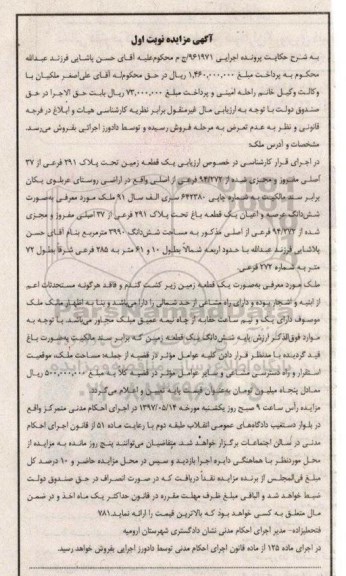 آگهی مزایده نوبت اول
به شرح حکایت پرونده اجرایی ۹۶۱۹۷۱/ج م محکوم‌علیه آقای حسن پاشایی فرزند عبدالله
محکوم به پرداخت مبلغ ۱,۴۶۰,۰۰۰,۰۰۰ ریال در حق محکوم‌له آقای علی‌اصغر ملکیان با
وکالت وکیل خانم راحله امینی و پرداخت مبلغ ۷۳,۰۰۰,۰۰۰ ریال بابت حق الاجرا در حق
صندوق دولت با توجه به ارزیابی مال غیرمنقول برابر نظریه کارشناسی هیات و ابلاغ در فرجه
قانونی و نظر به عدم تعرض به مرحله فروش رسیده و توسط دادورز اجرائی بفروش می‌رسد.
مشخصات و آدرس ملک:
در اجرای قرار کارشناسی در خصوص ارزیابی یک قطعه زمین تحت پلاک ۲۹۱ فرعی از ۳۷
اصلی مفروز و مجزی شده از ۱۴/۲۷۲ فرعی از اصلی واقع در اراضی روستای عربلوی یکان
برابر سند مالکیت به شماره چاپی ۶۴۲۳۸۰ سری الف سال ۹۱ ملک مورد معرفی به‌صورت
شش‌دانگ عرصه و اعیان یک قطعه باغ تحت پلاک ۲۹۱ فرعی از ۳۷ اصلی مفروز و مجزی
شده از ۹۴/۲۷۲ فرعی از اصلی مذکور به مساحت شش‌دانگ ۳۹۹۰ مترمربع بنام آقای حسن
پلاشایی فرزند عبدالله با حدود اربعه شمالا بطول ۱۰ و ۶۱ متر به ۲۸۵ فرعی شرقا بطول ۷۲
متر به شماره ۲۷۲ فرعی.
ملک مورد معرفی به‌صورت یک قطعه زمین زیر کشت گندم و فاقد هرگونه مستحدثات اعم
از ابنیه و اشجار بوده و دارای راه مشاعی از حد شمالی را دارا می‌باشد و بنا به اظهار مالک ملک
موصوف دارای یک و نیم ساعت حقابه از چاه نیمه عمیق ملک مجاور می‌باشد. با توجه به
موارد فوق‌الذکر ارزش پایه شش‌دانگ یک قطعه زمین که برابر سند مالکیت به‌صورت باغ
قید گردیده با مدنظر قرار دادن کلیه عوامل مؤثر در قضیه از جمله: مساحت ملک، موقعیت
استقرار و راه دسترسی مشاعی و سایر عوامل مؤثر در قضیه کلا به مبلغ ۵۰۰,۰۰۰,۰۰۰ ریال
معادل پنجاه میلیون تومان به‌عنوان قیمت پایه تعیین و اعلام می‌گردد.
مزایده رأس ساعت ۹ صبح روز یکشنبه مورخه ۱۳۹۷/۰۵/۱۴ در اجرای احکام مدنی متمرکز واقع
در بلوار دستغیب دادگاه‌های عمومی انقلاب طبقه دوم با رعایت ماده ۵۱ از قانون اجرای احکام
مدنی در سالن اجتماعات برگزار خواهد شد. متقاضیان می‌توانند پنج روز مانده به مزایده از
محل موردنظر با هماهنگی دایره اجرا بازدید و سپس در محل مزایده حاضر و ۱۰ درصد کل
مبلغ فی‌المجلس از برنده مزایده نقداً دریافت که در صورت انصراف در حق صندوق دولت
ضبط خواهد شد و الباقی مبلغ ظرف مهلت مقرره در قانون حداکثر یک ماه اخذ و در ضمن
مال متعلق به کسی خواهد بود که بالاترین قیمت را ارائه نماید. ۷۸۱
فتحعلیزاده- مدیر اجرای احکام مدنی نشان دادگستری شهرستان ارومیه
در اجرای ماده ۱۲۵ از ماده قانون اجرای احکام مدنی توسط دادورز اجرایی بفروش خواهد رسید.
ParsNamadData